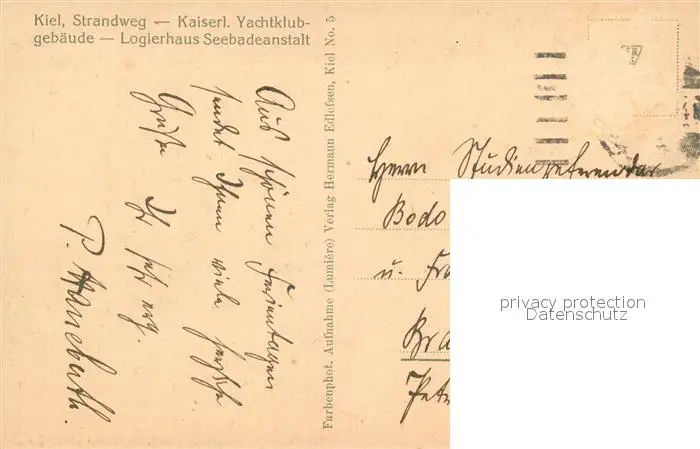 Kiel, Strandweg — Kaiserl. Yachtklub-
gebäude — Logierhaus Seebadeanstalt
Farbenphot. Aufnahme (Lumière) Verlag Hermann Edlefsen, Kiel No. 5
Aus schönen Ferientagen
sendet Ihnen viele herzliche
Grüße
Ihr sehr erg.
P.
Herrn Studienreferendar
Bodo
u. Fra
Bra
Pete
privacy protection
Datenschutz